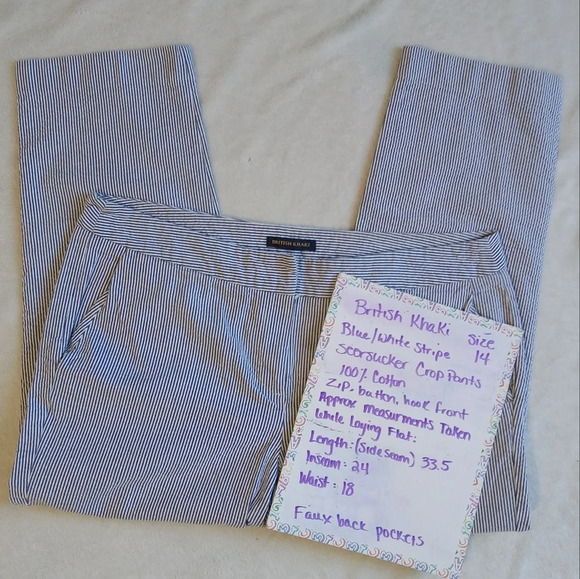 BRITISH KHAKI
British Khaki
Size 14
Blue/White Stripe
Seersucker Crop Pants
100% Cotton
Zip, button, hook front
Approx measurments Taken
While Laying Flat:
Length: (Side seam) 33.5
Inseam: 24
Waist: 18
Faux back pockets